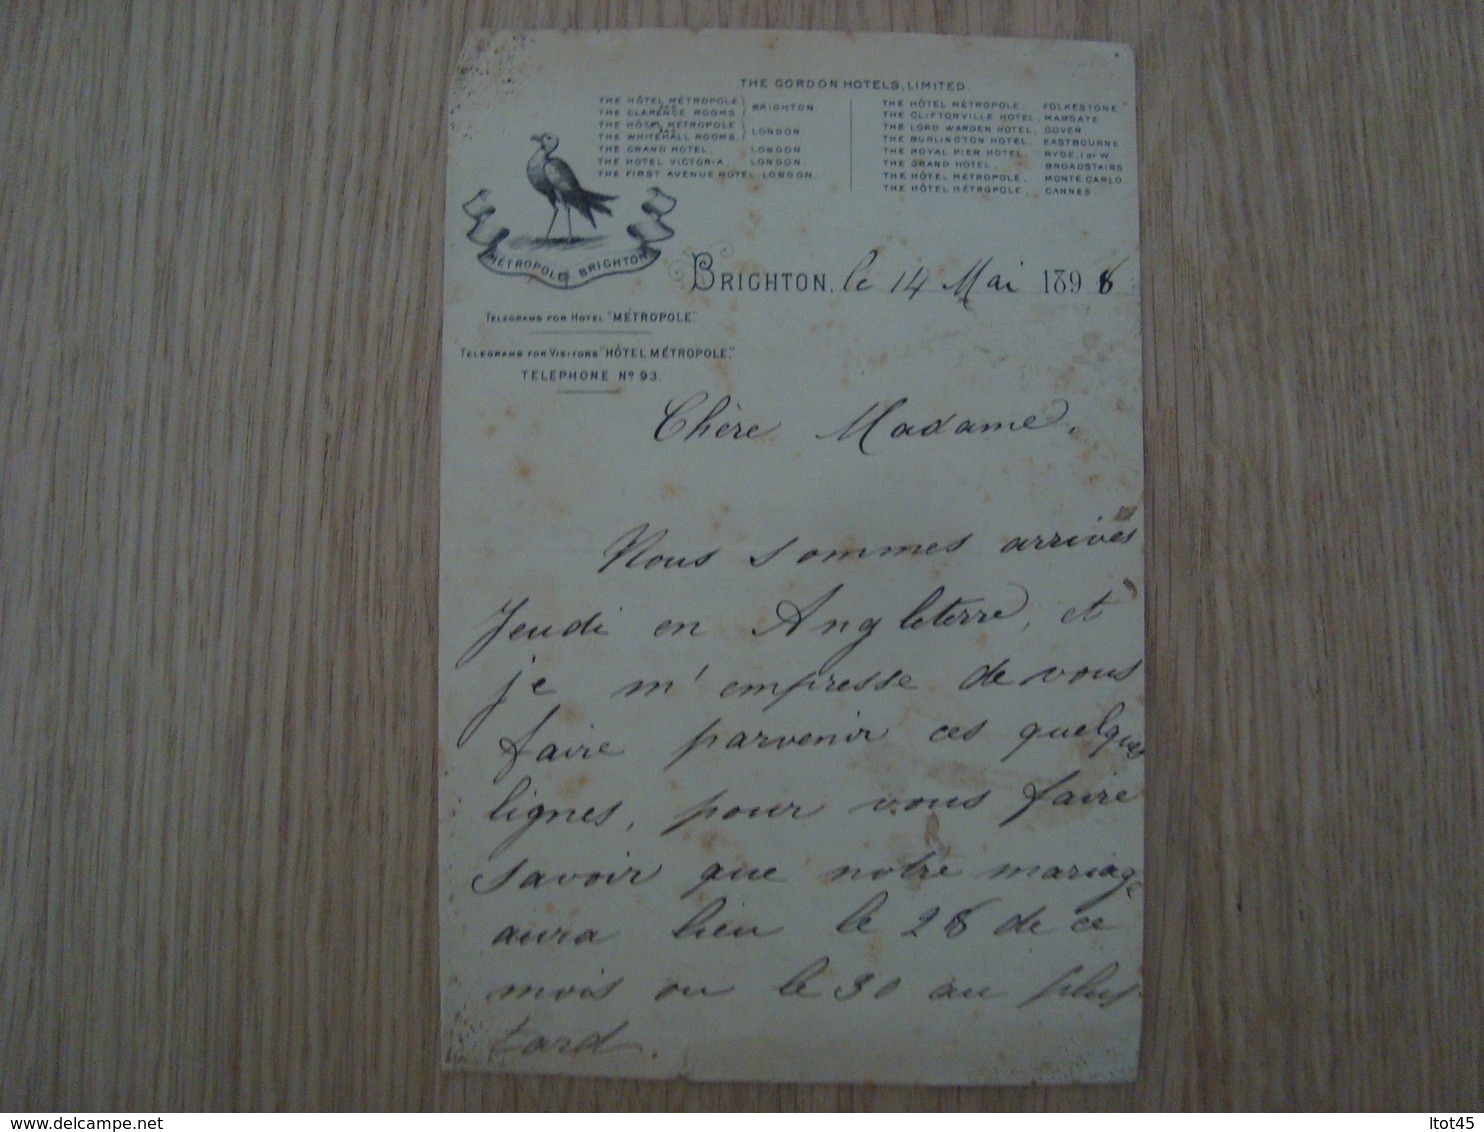 THE GORDON HOTELS, LIMITED
THE HÔTEL MÉTROPOLE
AND
THE CLARENCE ROOMS
BRIGHTON
THE HÔTEL MÉTROPOLE
AND
THE WHITEHALL ROOMS
LONDON
THE GRAND HOTEL, LONDON
THE HOTEL VICTORIA, LONDON
THE FIRST AVENUE HOTEL, LONDON
THE HÔTEL MÉTROPOLE FOLKESTONE
THE CLIFTONVILLE HOTEL, MARGATE
THE LORD WARDEN HOTEL, DOVER
THE BURLINGTON HOTEL, EASTBOURNE
THE ROYAL PIER HOTEL, RYDE, I of W
THE GRAND HOTEL, BROADSTAIRS
THE HÔTEL MÉTROPOLE, MONTE CARLO
THE HÔTEL MÉTROPOLE, CANNES
MÉTROPOLE BRIGHTON
BRIGHTON, le 14 Mai 1898
TELEGRAMS FOR HOTEL "MÉTROPOLE"
TELEGRAMS FOR VISITORS "HÔTEL MÉTROPOLE"
TELEPHONE Nº 93.
Chère Madame,
Nous sommes arrivés
Jeudi en Angleterre, et
je m'empresse de vous
faire parvenir ces quelques
lignes, pour vous faire
savoir que notre mariage
aura lieu le 28 de ce
mois ou le 30 au plus
tard.
Itot45